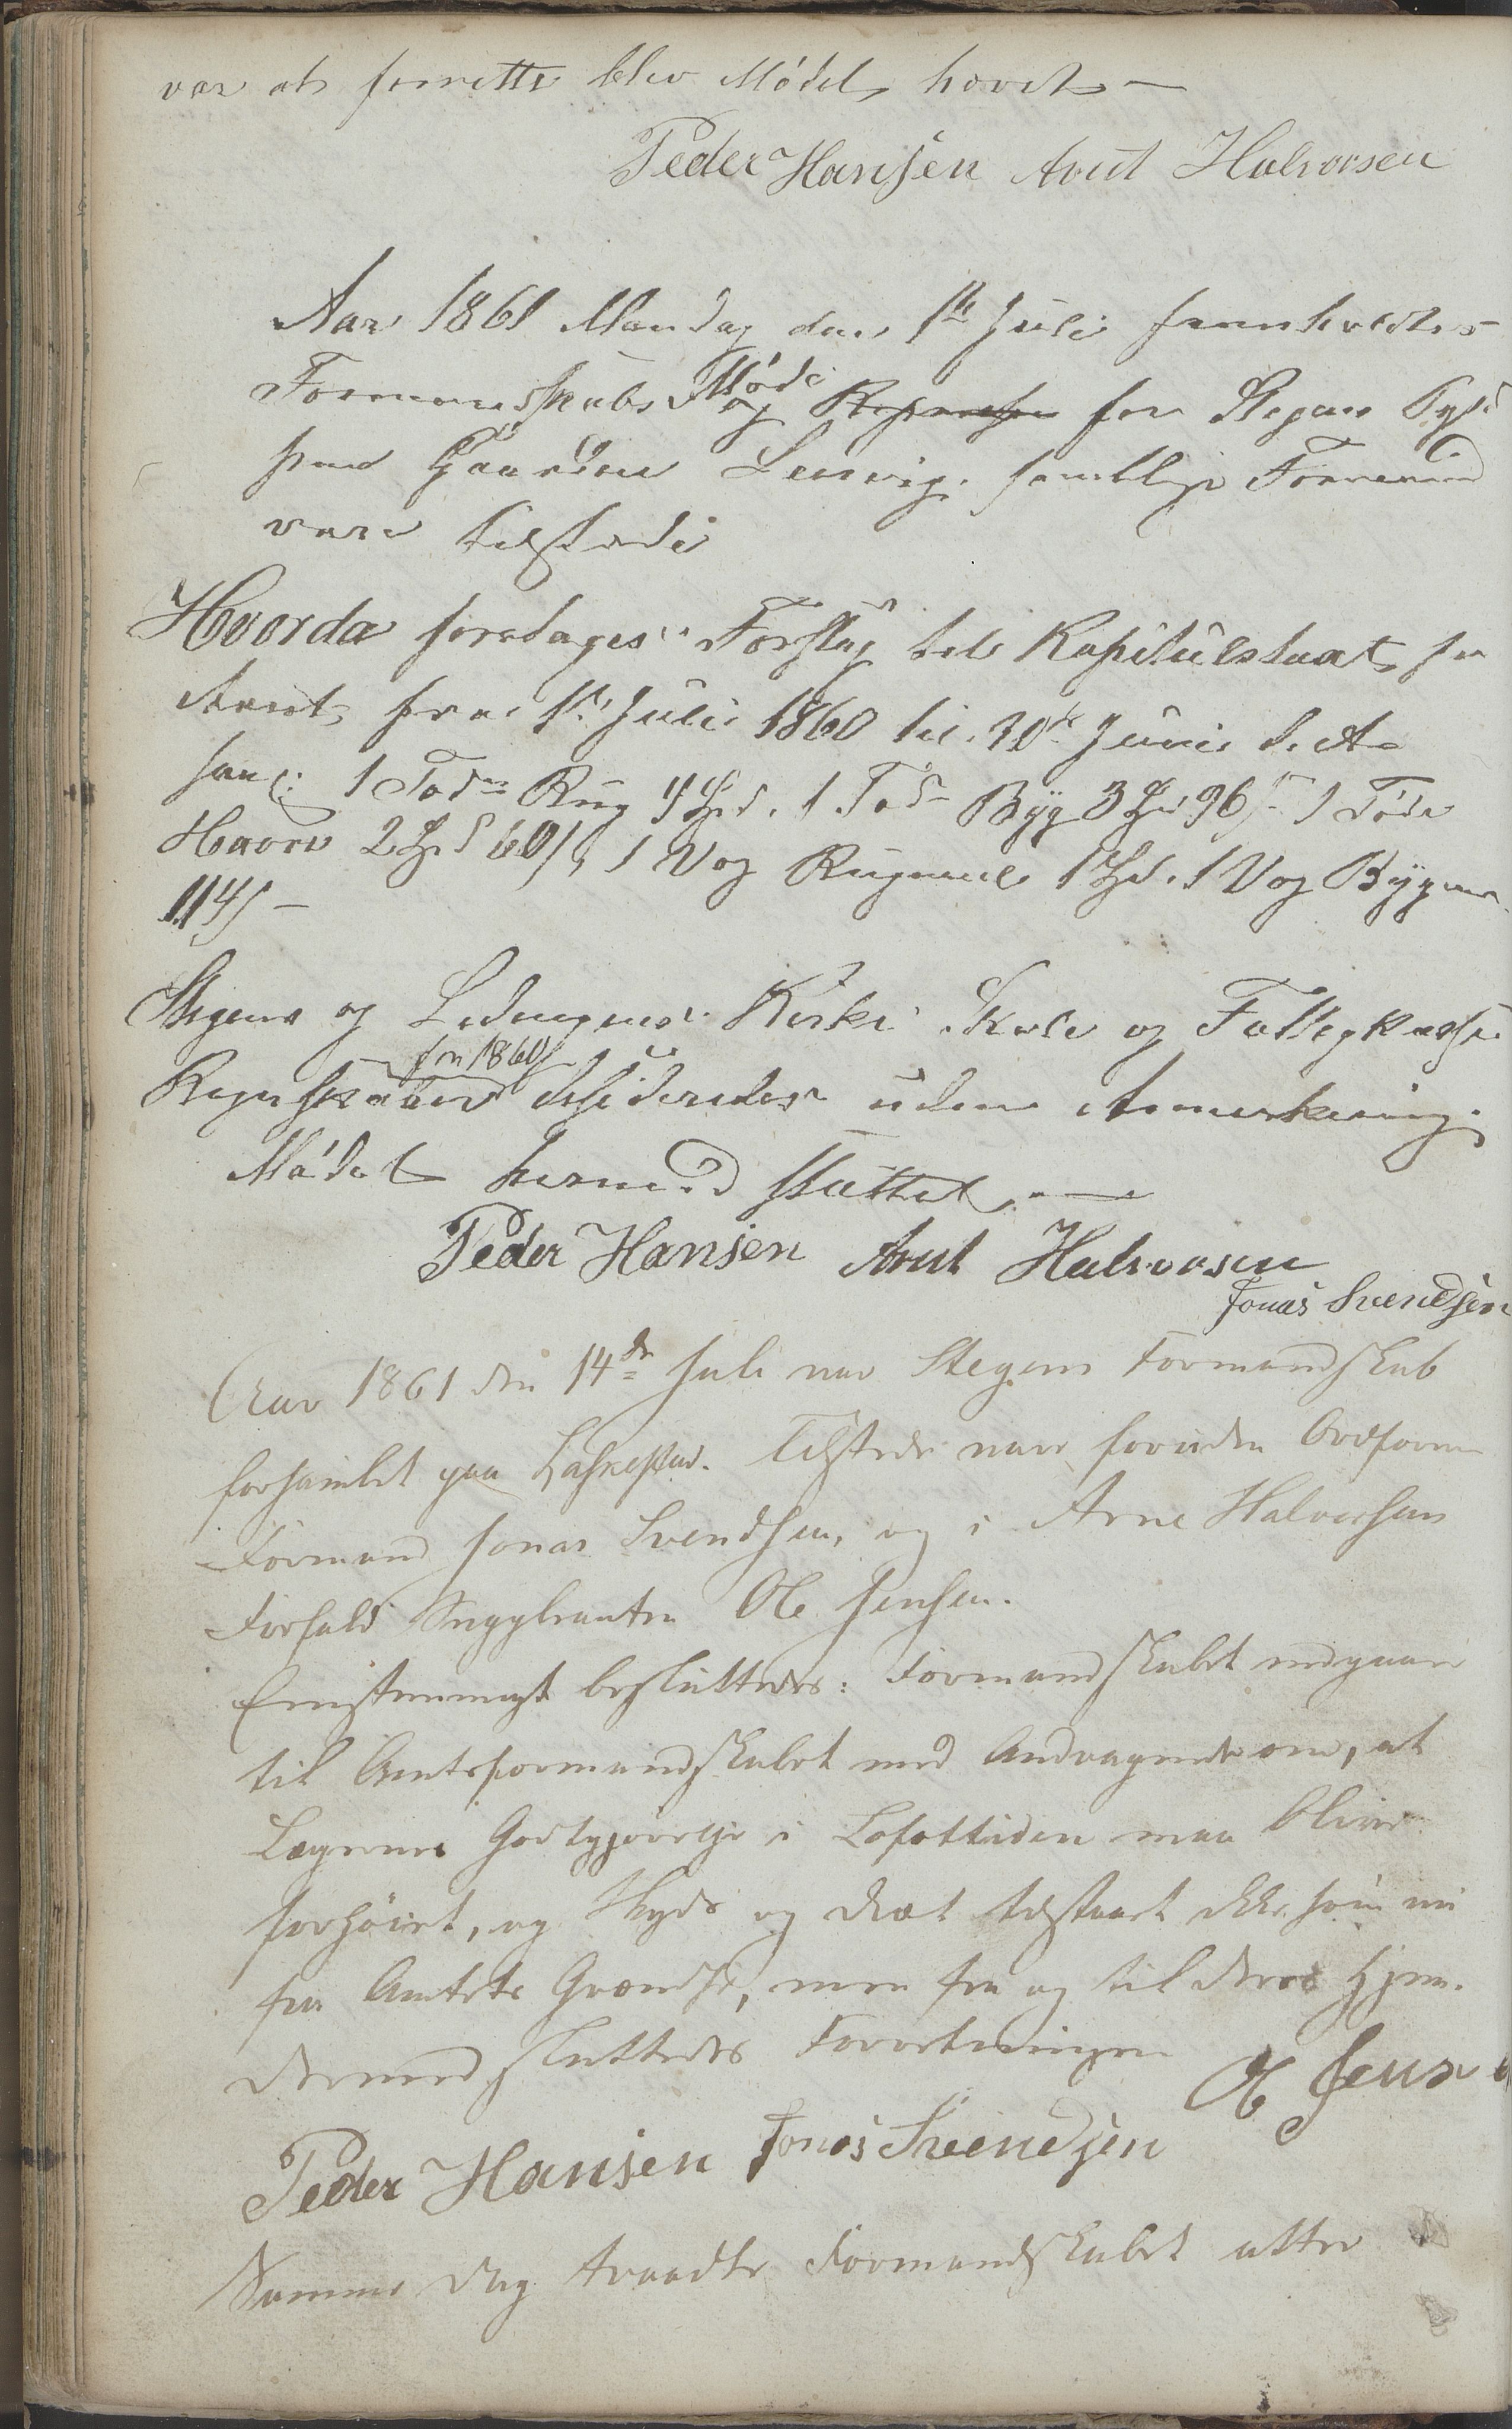 var at forrette blev Mødet hævet –
Peder Hansen Arnt Halvorsen
Aar 1861 Mandag den 1ste Juli fremholdtes
Formandskabs Møde og Repræsen for Stegen
paa Gaarden Leervig. samtlige Formænd
vare tilstede
Hvorda foretages Forslag til Kapitulstaxt for
Aaret fra 1ste Juli 1860 til 30te Juni d. A.
saal: 1 Tøde Rug 4 Spd. 1 Tøde Byg 3 Spd 96 s 1 Tøde
Havre 2 Spd 60 s, 1 Vog Rugmel 1 Spd. 1 Vog Bygme
114 s –
Stegens og Lødingens Kirke Skole og Fattigkasse
for 1860
Regnskaber desideredes uden Anmerkning.
Mødet hermed sluttet. –
Peder Hansen Arnt Halvorsen
Jonas Svendsen
Aar 1861 den 14de Juli var Stegens Formandskab
forsamlet paa Laskestad. Tilstede vare foruden Ordføren
Formand Jonas Svendsen, og i Arne Halvorsens
Forfald Suppleanten Ole Jensen.
Eenstemmigt besluttedes: Formandskabet indgaar
til Amtsformandskabet med Andragende om, at
Lægernes Godtgjørelse i Lofottiden maa blive
forhøiet, og Skyds og Diæt tilstaaet ikke som nu
fra Amtets Grændse, men fra og til deres Hjem.
Dermed sluttedes Forretningen
O Jensen
Peder Hansen Jonas Svendsen
Samme Dag traadte Formandskabet atter